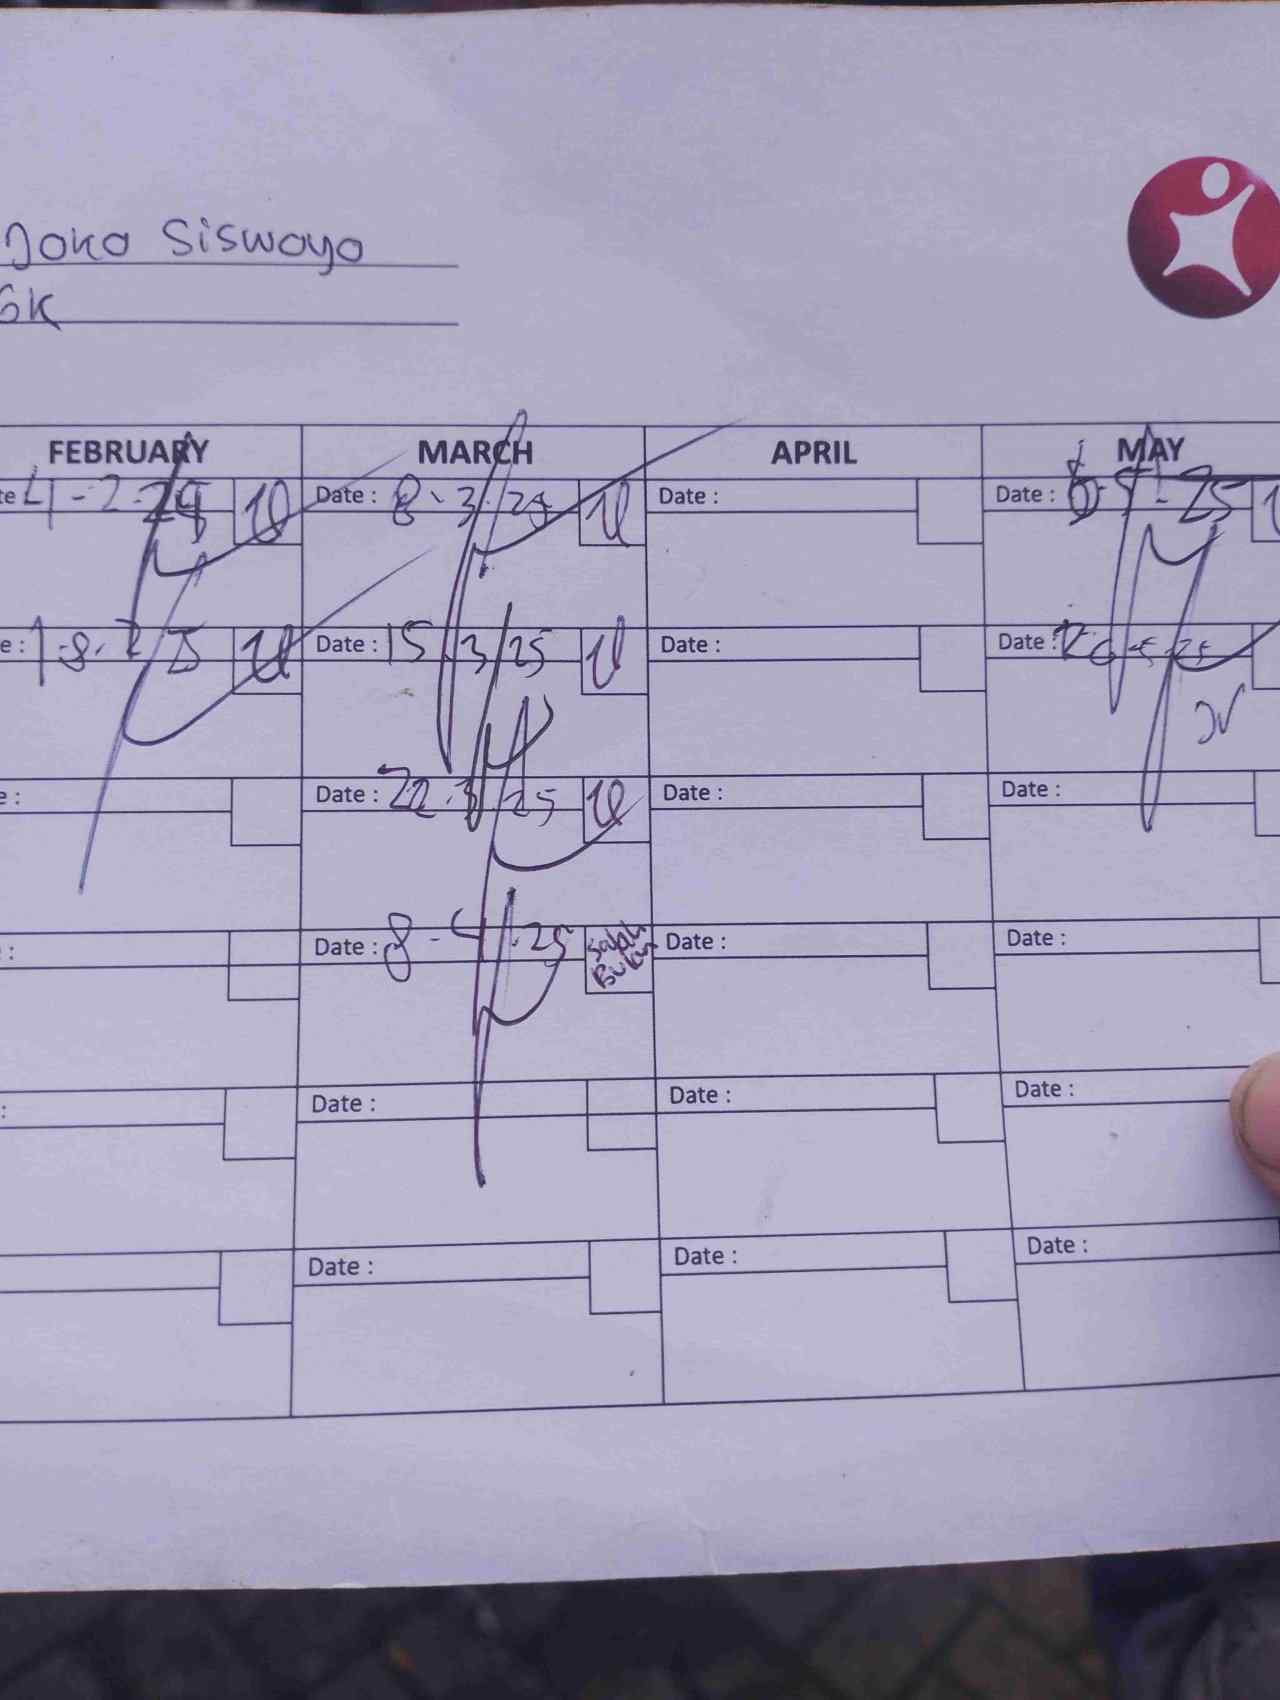 Joko Siswoyo
GK
FEBRUARY MARCH APRIL MAY
te 4-2-25 U Date : 8-3-25 U Date : Date : 5-25
e : U Date : 15/3/25 U Date : Date :
e : Date : 22.3.25 U Date : Date :
: Date : 8-4-25 Salah Bulan Date : Date :
: Date : Date : Date :
Date : Date : Date :